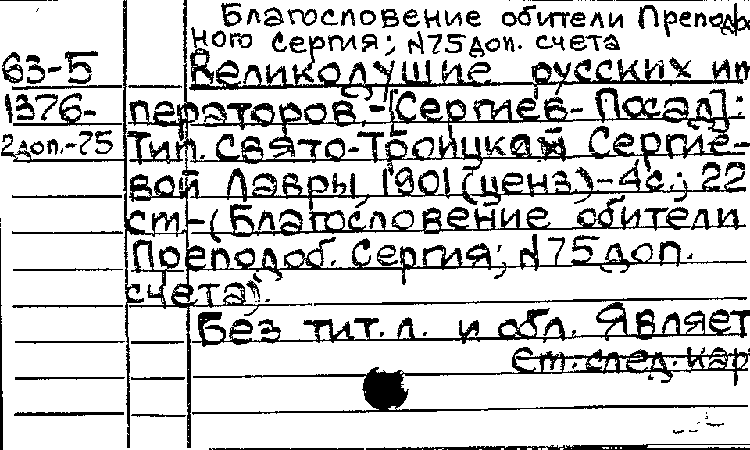 Благословение обители Преподоб
ного Сергия; N75 доп. счета
63-5 Великодушие русских им
1376- ператоров.-[Сергиев-Посад]:
2доп.-75 Тип. Свято-Троицкая Сергие-
вой Лавры, 1901 (ценз.)-4с.; 22
см.-(Благословение обители
Преподоб. Сергия; N75 доп.
счета).
Без тит. л. и обл. Являет
см. след. кар